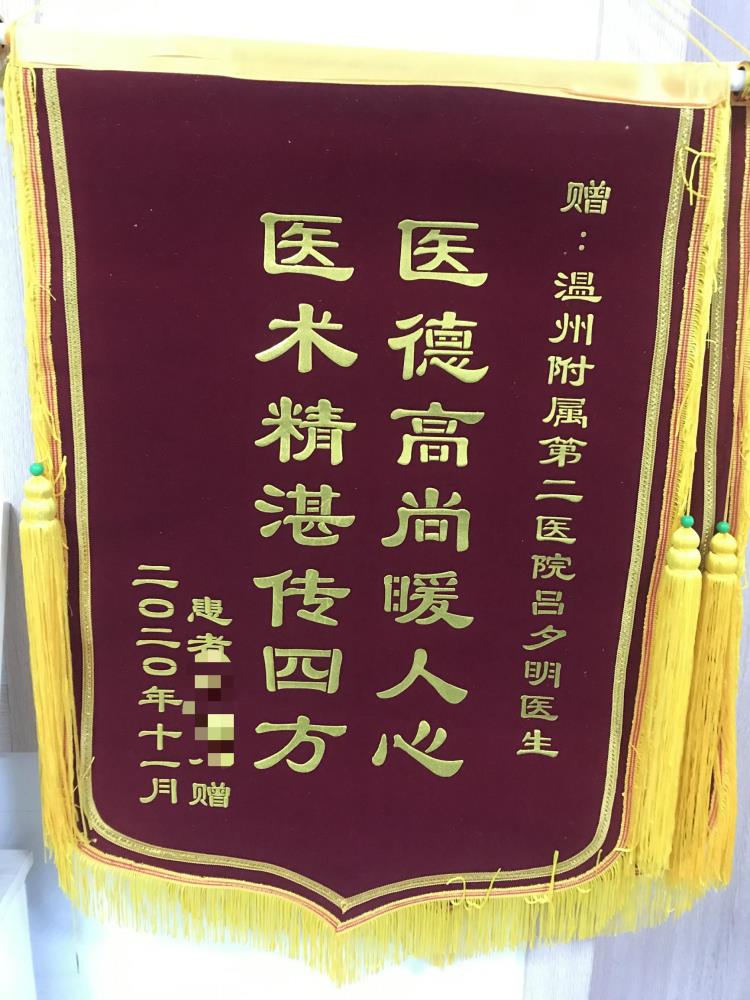 赠：温州附属第二医院吕夕明医生
医德高尚暖人心
医术精湛传四方
患者赠
二〇二〇年十一月